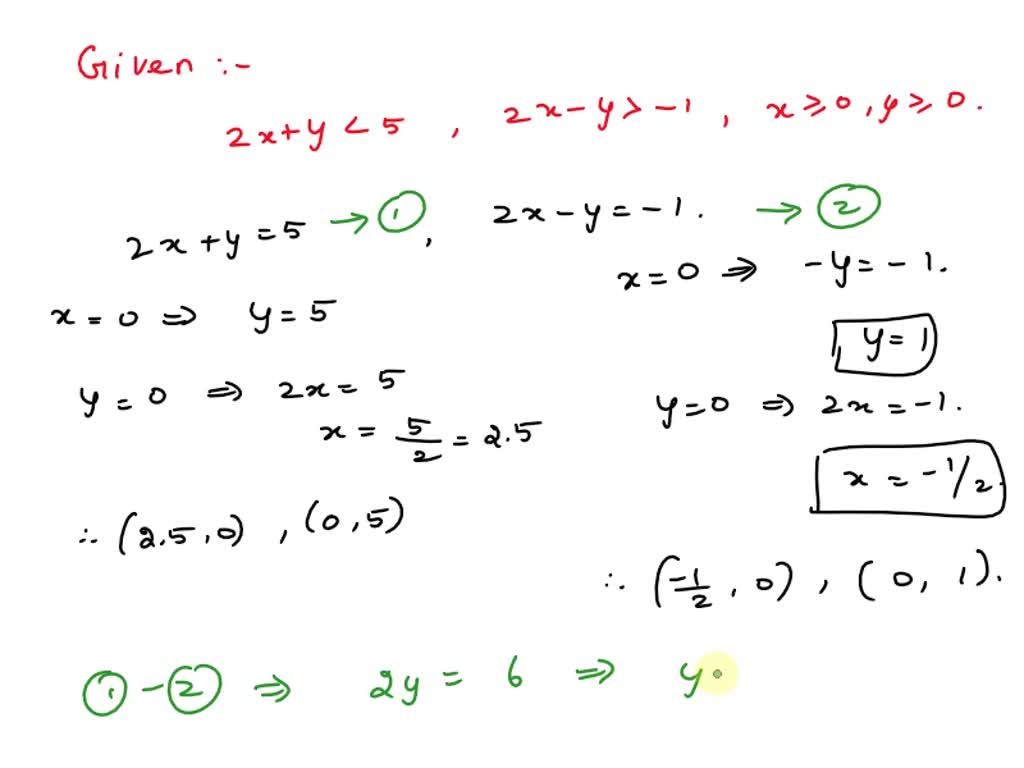 Given :-
2x+y < 5 , 2x-y > -1 , x ≥ 0, y ≥ 0.
2x+y = 5 → ① , 2x-y = -1. → ②
x = 0 ⇒ y = 5
x = 0 ⇒ -y = -1.
y = 1
y = 0 ⇒ 2x = 5
x = 5/2 = 2.5
y = 0 ⇒ 2x = -1.
x = -1/2.
∴ (2.5, 0) , (0, 5)
∴ (-1/2, 0) , (0, 1).
① - ② ⇒ 2y = 6 ⇒ y